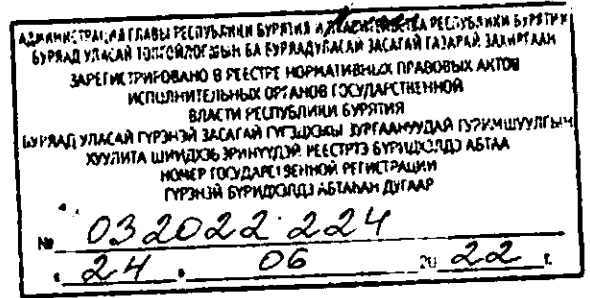 АДМИНИСТРАЦИЯ ГЛАВЫ РЕСПУБЛИКИ БУРЯТИЯ И ПРАВИТЕЛЬСТВА РЕСПУБЛИКИ БУРЯТИЯ
БУРЯАД УЛАСАЙ ТОЛГОЙЛОГШЫН БА БУРЯАД УЛАСАЙ ЗАСАГАЙ ГАЗАРАЙ ЗАХИРГААН
ЗАРЕГИСТРИРОВАНО В РЕЕСТРЕ НОРМАТИВНЫХ ПРАВОВЫХ АКТОВ
ИСПОЛНИТЕЛЬНЫХ ОРГАНОВ ГОСУДАРСТВЕННОЙ
ВЛАСТИ РЕСПУБЛИКИ БУРЯТИЯ
БУРЯАД УЛАСАЙ ГҮРЭНЭЙ ЗАСАГАЙ ГҮЙСЭДХЭХЫ ЗУРГААНУУДАЙ ГУРИМШУУЛГЫН
ХУУЛИТА ШИИДХЭБЭРИНҮҮДЭЙ РЕЕСТРТЭ БҮРИДХЭЛДЭ АБТАА
НОМЕР ГОСУДАРСТВЕННОЙ РЕГИСТРАЦИИ
ГҮРЭНЭЙ БҮРИДХЭЛДЭ АБТАҺАН ДУГААР
№ 032022224
" 24 " 06 20 22 г.